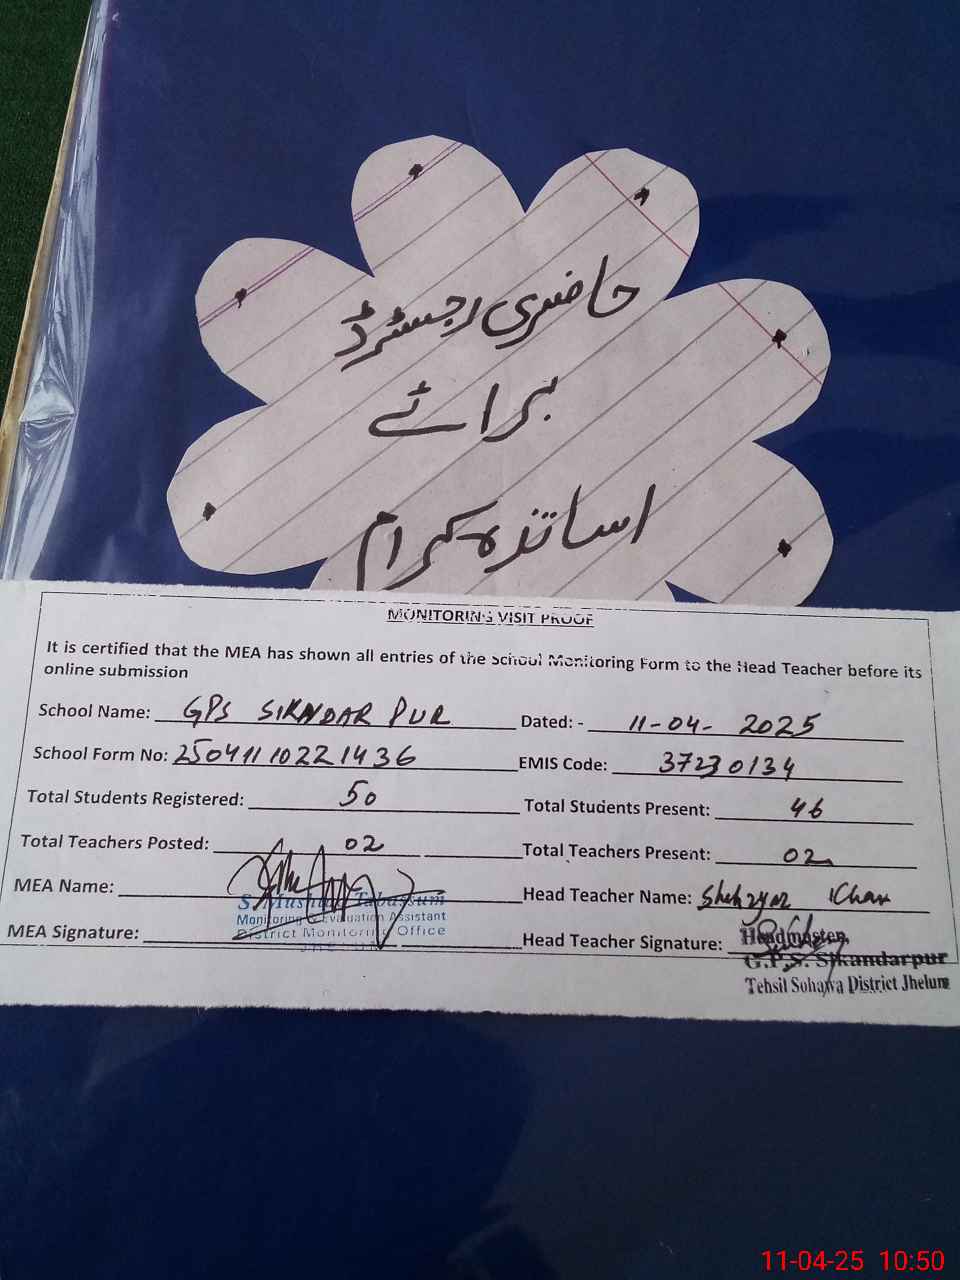 حاضری رجسٹرڈ
برائے
اساتذہ کرام
MONITORING VISIT PROOF
It is certified that the MEA has shown all entries of the School Monitoring Form to the Head Teacher before its
online submission
School Name: GPS SIKNDAR PUR Dated: - 11-04-2025
School Form No: 25041110221436 EMIS Code: 37230134
Total Students Registered: 50 Total Students Present: 46
Total Teachers Posted: 02 Total Teachers Present: 02
MEA Name: Head Teacher Name: Shehzyar Khan
Tabassum
Monitoring & Evaluation Assistant
District Monitoring Office
MEA Signature: Head Teacher Signature:
Headmaster
G.P.S. Sikandarpur
Tehsil Sohawa District Jhelum
11-04-25 10:50